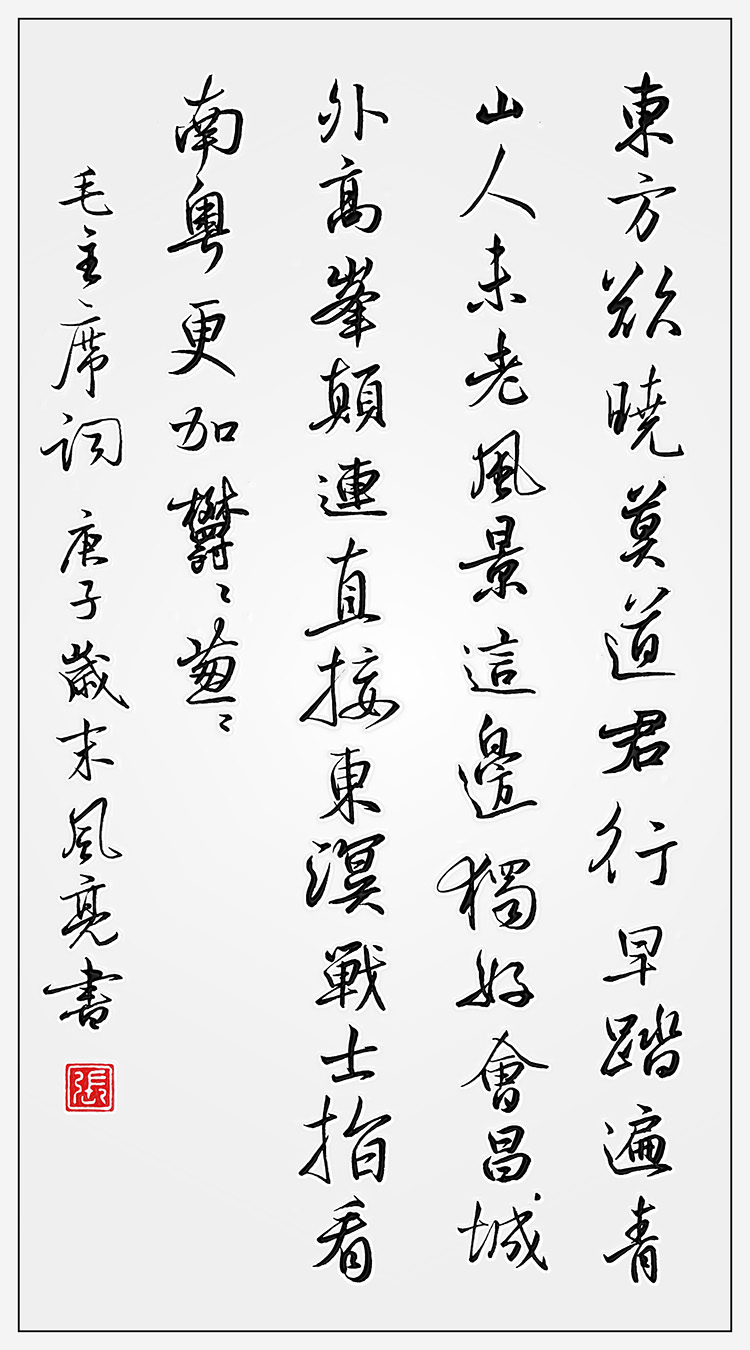 東方欲曉莫道君行早踏遍青
山人未老風景這邊獨好會昌城
外高峯顛連直接東溟戰士指看
南粵更加鬱〻葱〻
毛主席詞 庚子歲末風亮書
張